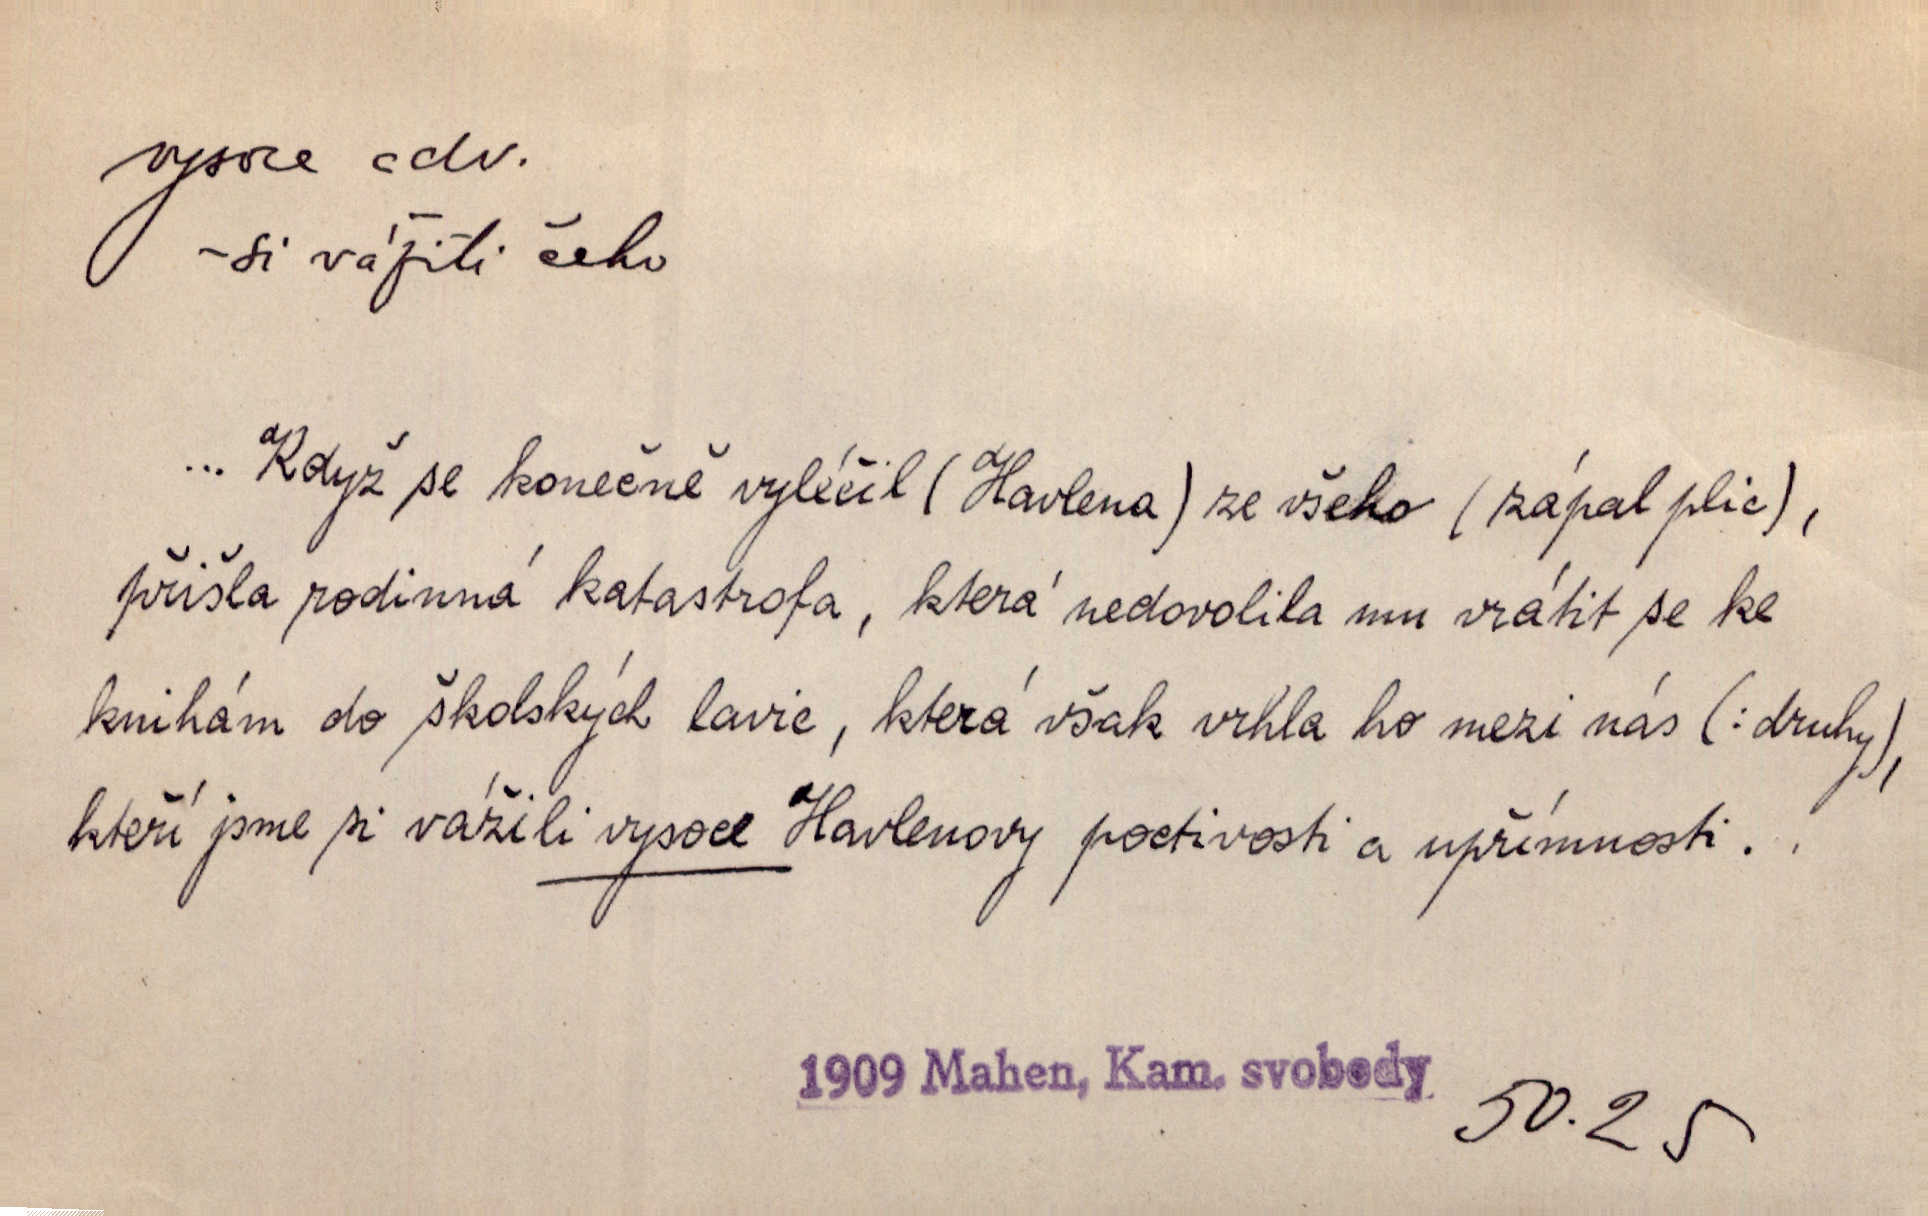 vysoce adv.
- si vážiti čeho
... Když se konečně vyléčil (Havlena) ze všeho (zápal plic),
přišla rodinná katastrofa, která nedovolila mu vrátit se ke
knihám do školských lavic, která však vrhla ho mezi nás (: druhy),
kteří jsme si vážili vysoce Havlenovy poctivosti a upřímnosti . .
1909 Mahen, Kam. svobody
50.25